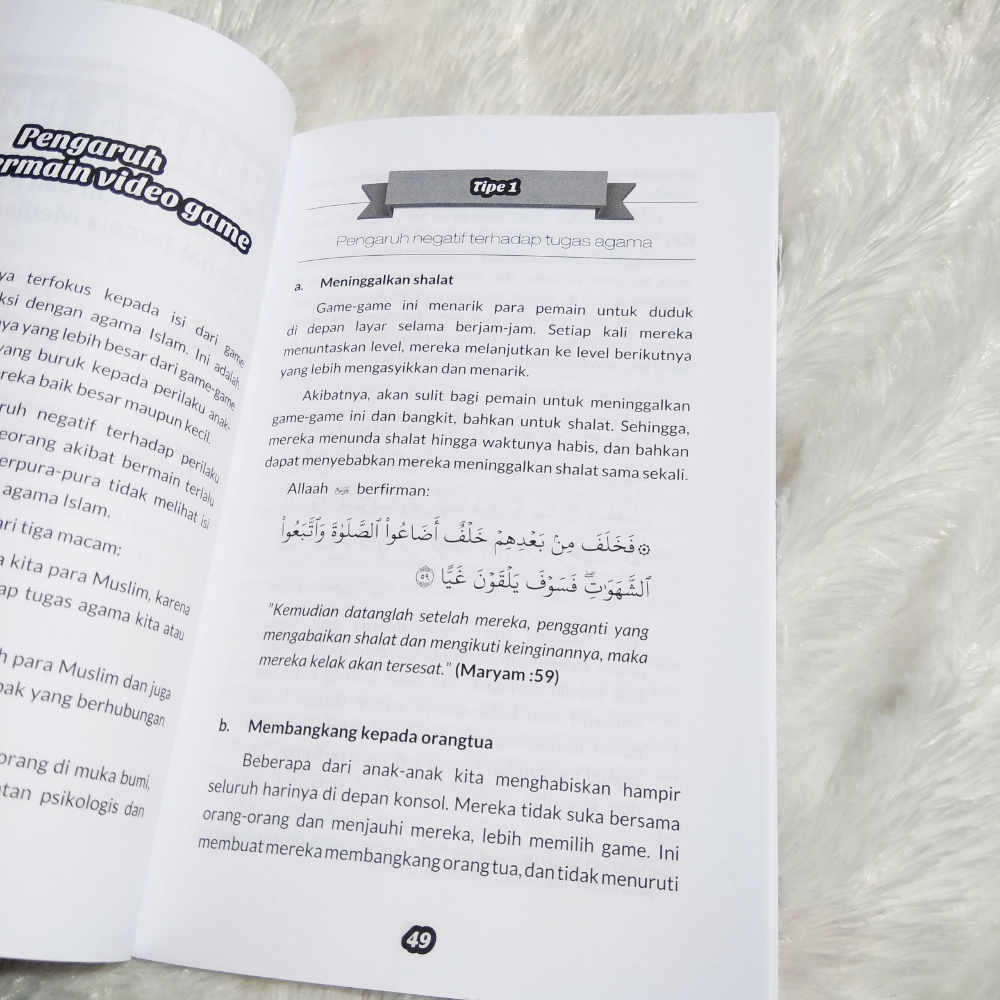 Pengaruh
video game
terfokus kepada isi dari game
dengan agama Islam. Ini adalah
yang lebih besar dari game-game
yang buruk kepada perilaku anak-
baik besar maupun kecil.
negatif terhadap perilaku
akibat bermain terlalu
tidak melihat isi
agama Islam.
tiga macam:
kita para Muslim, karena
tugas agama kita atau
para Muslim dan juga
yang berhubungan
orang di muka bumi,
psikologis dan
Tipe 1
Pengaruh negatif terhadap tugas agama
a. Meninggalkan shalat
Game-game ini menarik para pemain untuk duduk
di depan layar selama berjam-jam. Setiap kali mereka
menuntaskan level, mereka melanjutkan ke level berikutnya
yang lebih mengasyikkan dan menarik.
Akibatnya, akan sulit bagi pemain untuk meninggalkan
game-game ini dan bangkit, bahkan untuk shalat. Sehingga,
mereka menunda shalat hingga waktunya habis, dan bahkan
dapat menyebabkan mereka meninggalkan shalat sama sekali.
Allaah berfirman:
۞ فَخَلَفَ مِنۢ بَعْدِهِمْ خَلْفٌ أَضَاعُوا۟ ٱلصَّلَوٰةَ وَٱتَّبَعُوا۟
ٱلشَّهَوَٰتِ ۖ فَسَوْفَ يَلْقَوْنَ غَيًّا ٥٩
"Kemudian datanglah setelah mereka, pengganti yang
mengabaikan shalat dan mengikuti keinginannya, maka
mereka kelak akan tersesat." (Maryam :59)
b. Membangkang kepada orangtua
Beberapa dari anak-anak kita menghabiskan hampir
seluruh harinya di depan konsol. Mereka tidak suka bersama
orang-orang dan menjauhi mereka, lebih memilih game. Ini
membuat mereka membangkang orang tua, dan tidak menuruti
49